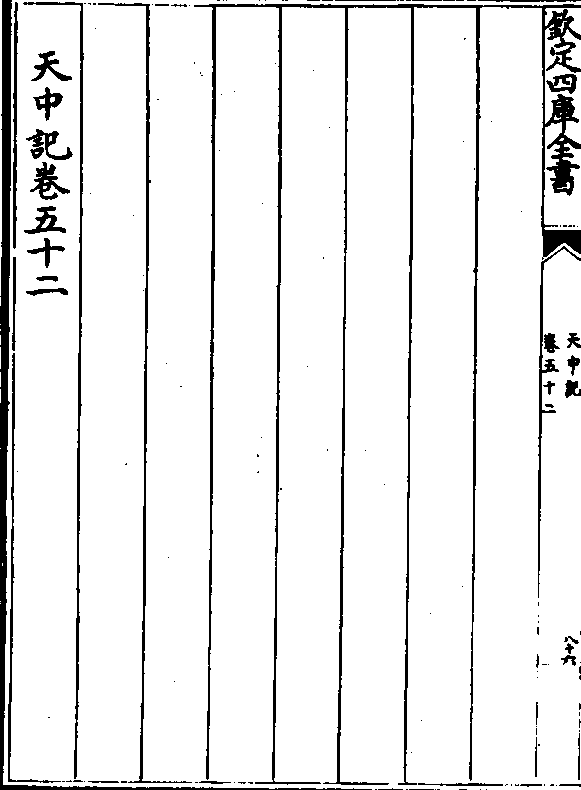 欽定四庫全書
天中記
卷五十二
八十六
天中記卷五十二